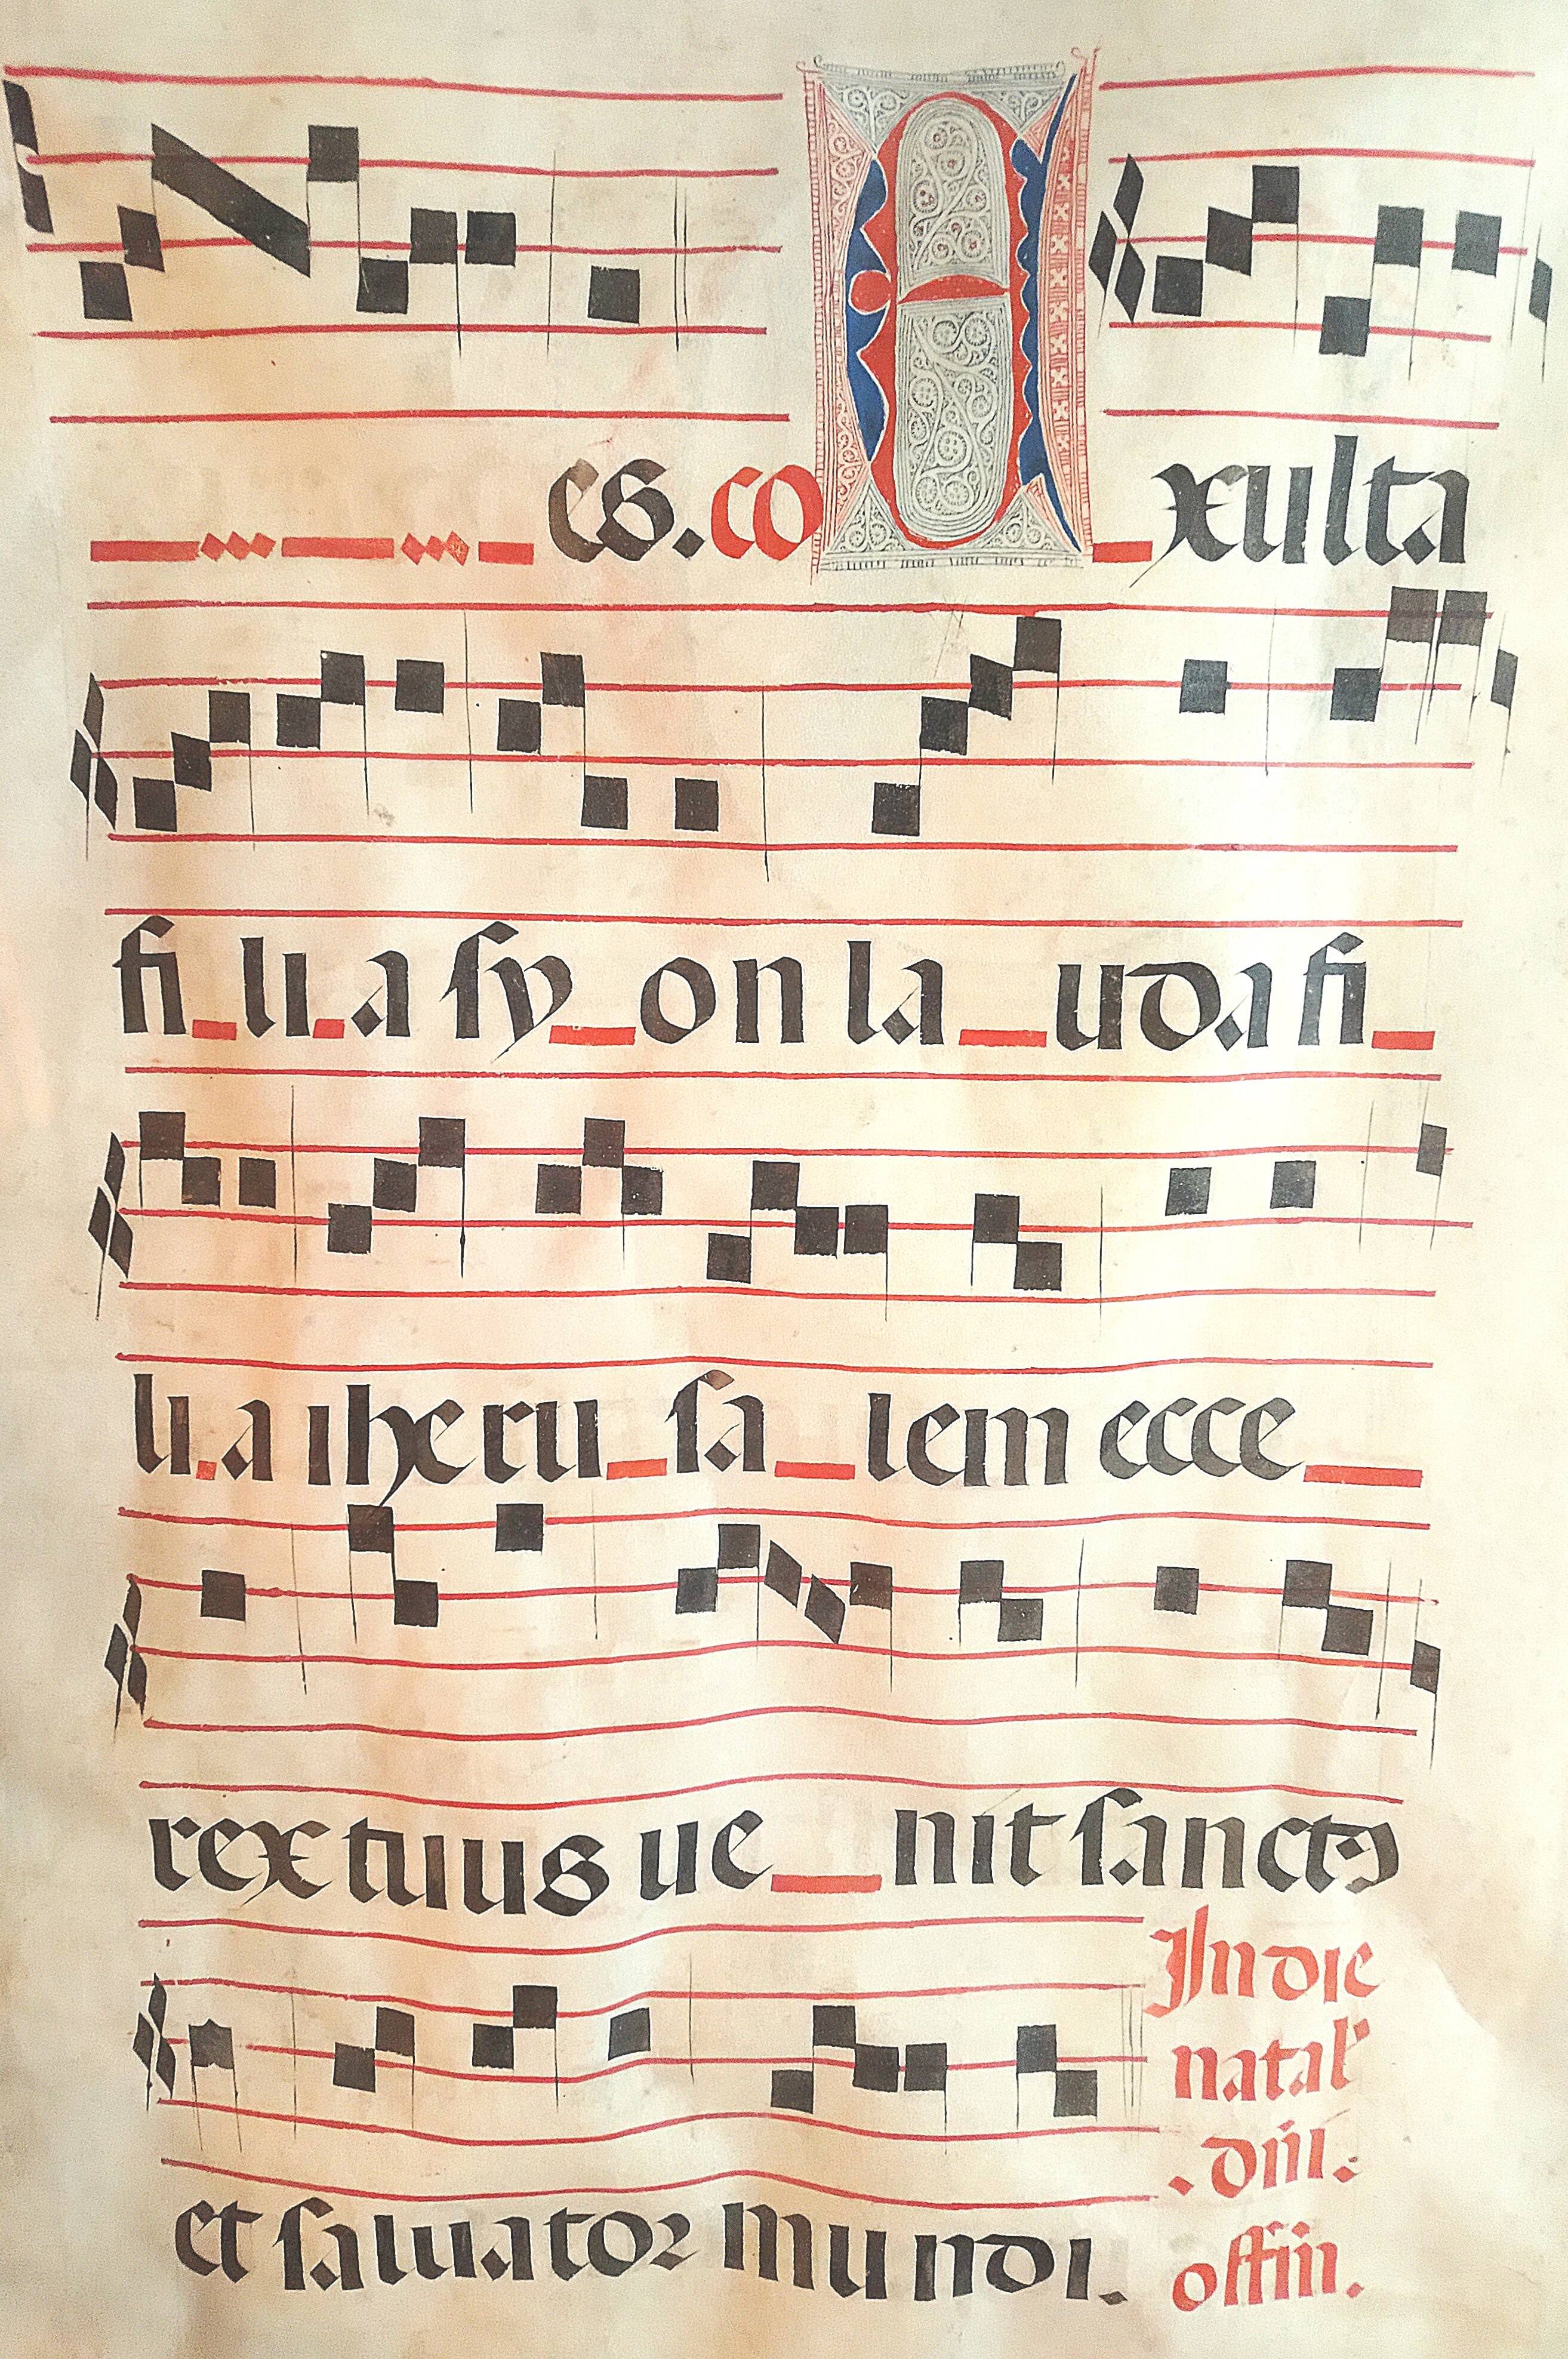 es. co Exulta
fi_li_a sy_on la_uda fi_
li_a iheru_sa_lem ecce_
rex tuus ue_nit sanctꝯ
et saluator mundi.
In die
natal'
.dñi.
offiñ.